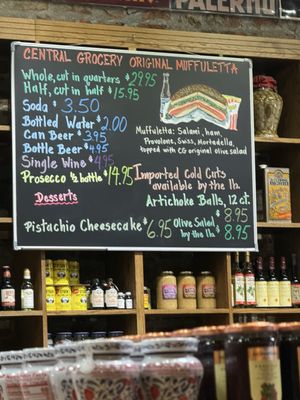 PALERMO
CENTRAL GROCERY ORIGINAL MUFFULETTA
Whole, cut in quarters $29.95
Half, cut in half $15.95
Soda $3.50
Bottled Water $2.00
Can Beer $3.95
Bottle Beer $4.95
Single Wine $4.95
Prosecco ½ bottle $14.95
Desserts
Pistachio Cheesecake $6.95
Muffuletta: Salami, ham,
Provolone, Swiss, Mortadella,
topped with CG original olive salad
Imported Cold Cuts
available by the lb.
Artichoke Balls, 12 ct.
$8.95
Olive Salad
by the lb. $8.95